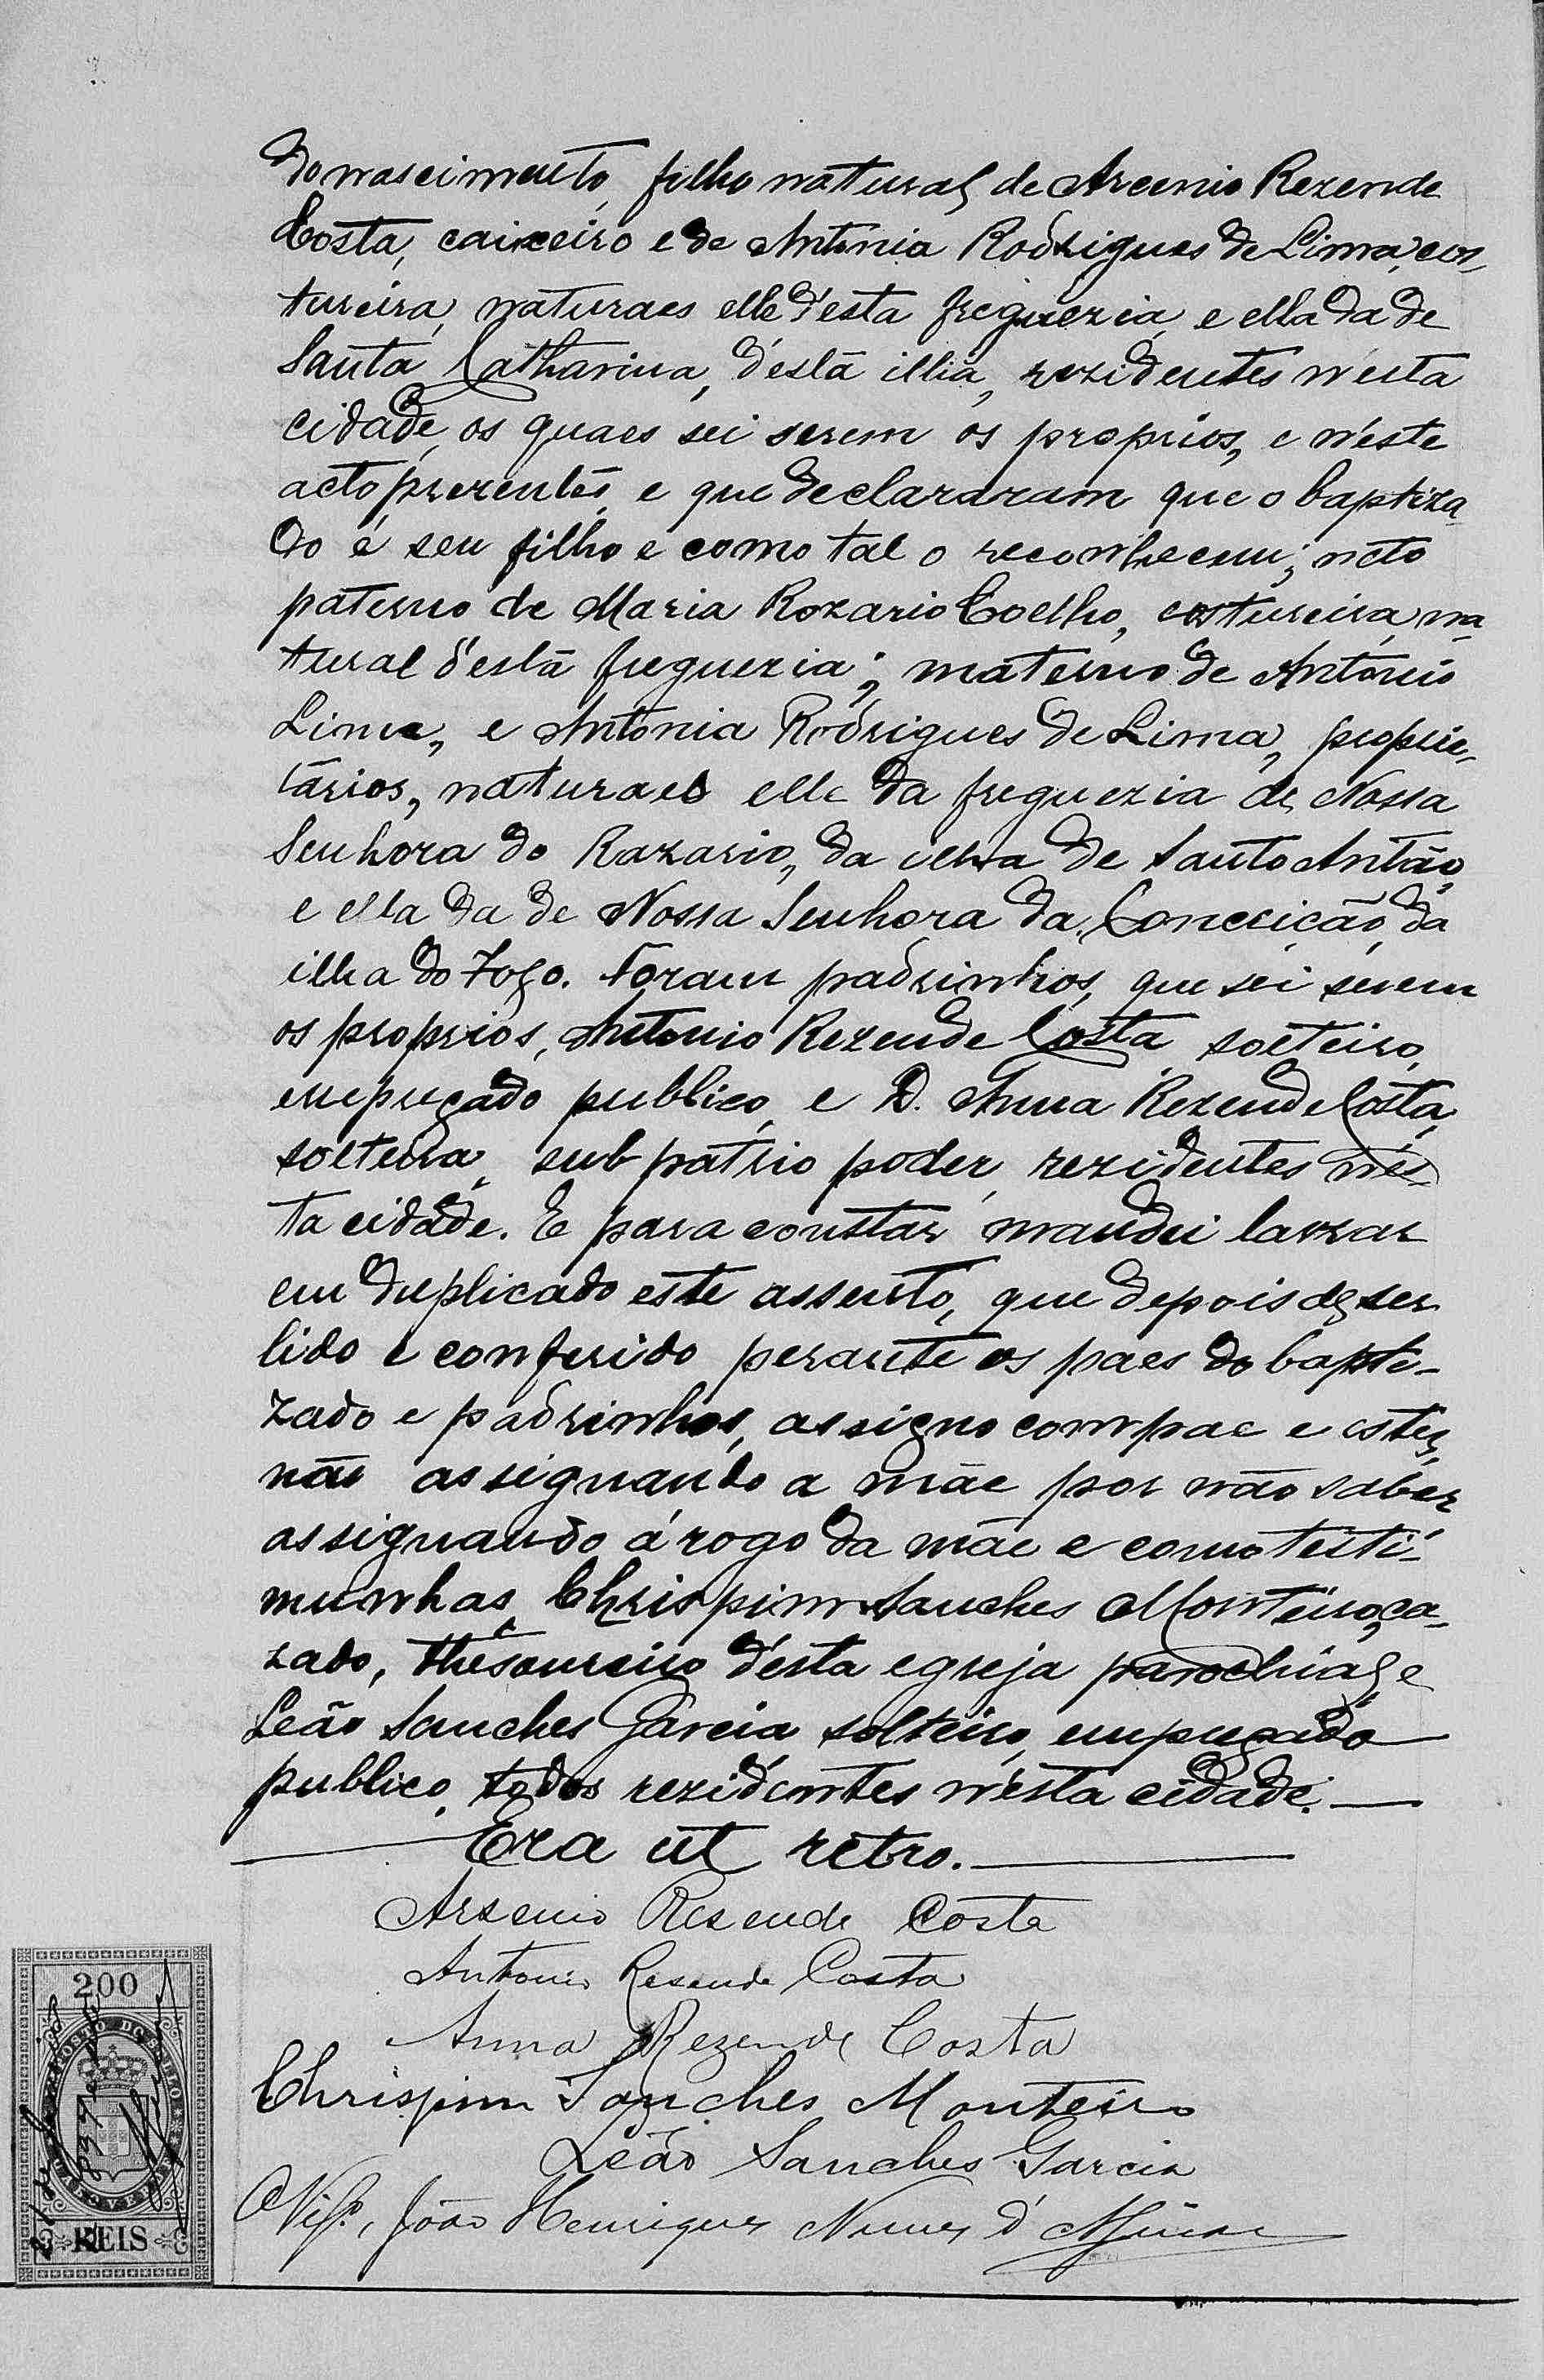 do nascimento, filho natural de Arcenio Rezende
Costa, caixeiro e de Antonia Rodrigues de Lima, cos,
tureira, naturaes elle d'esta freguezia, e ella da de
Santa Catharina, d'esta ilha, rezidentes n'esta
cidade, os quaes sei serem os proprios, e n'este
acto prezentes, e que declararam que o baptiza
do é seu filho e como tal o reconhecem; neto
paterno de Maria Rozario Coelho, costureira, na
tural d'esta freguezia; materno de Antonio
Lima, e Antonia Rodrigues de Lima, proprie,
tários, naturaes elle da freguezia de Nossa
Senhora do Razario, da ilha de Santo Antão,
e ella da de Nossa Senhora da Conceição, da
ilha do Fogo. Foram padrinhos, que sei serem
os proprios, Antonio Rezende Costa solteiro,
empregado publico, e D. Anna Rezende Costa,
solteira, sub patrio poder, rezidentes n'es-
ta cidade. E para constar mandei lavrar
em duplicado este assento, que depois de ser
lido e conferido perante os paes do bapti-
zado e padrinhos, assigno com pae e estes,
não assignando a mãe por não saber
assignando á rogo da mãe e como testi-
munhas, Chrispim Sanches Monteiro, ca-
zado, thesoureiro d'esta egreja parochial, e
Leão Sanches Garcia solteiro, empregado
publico, todos rezidentes n'esta cidade. —
Era ut retro.
Arsenio Resende Costa
Antonio Resende Costa
Anna Rezende Costa
Chrispim Sanches Monteiro
Leão Sanches Garcia
João Henriques Nunes d'
200
REIS